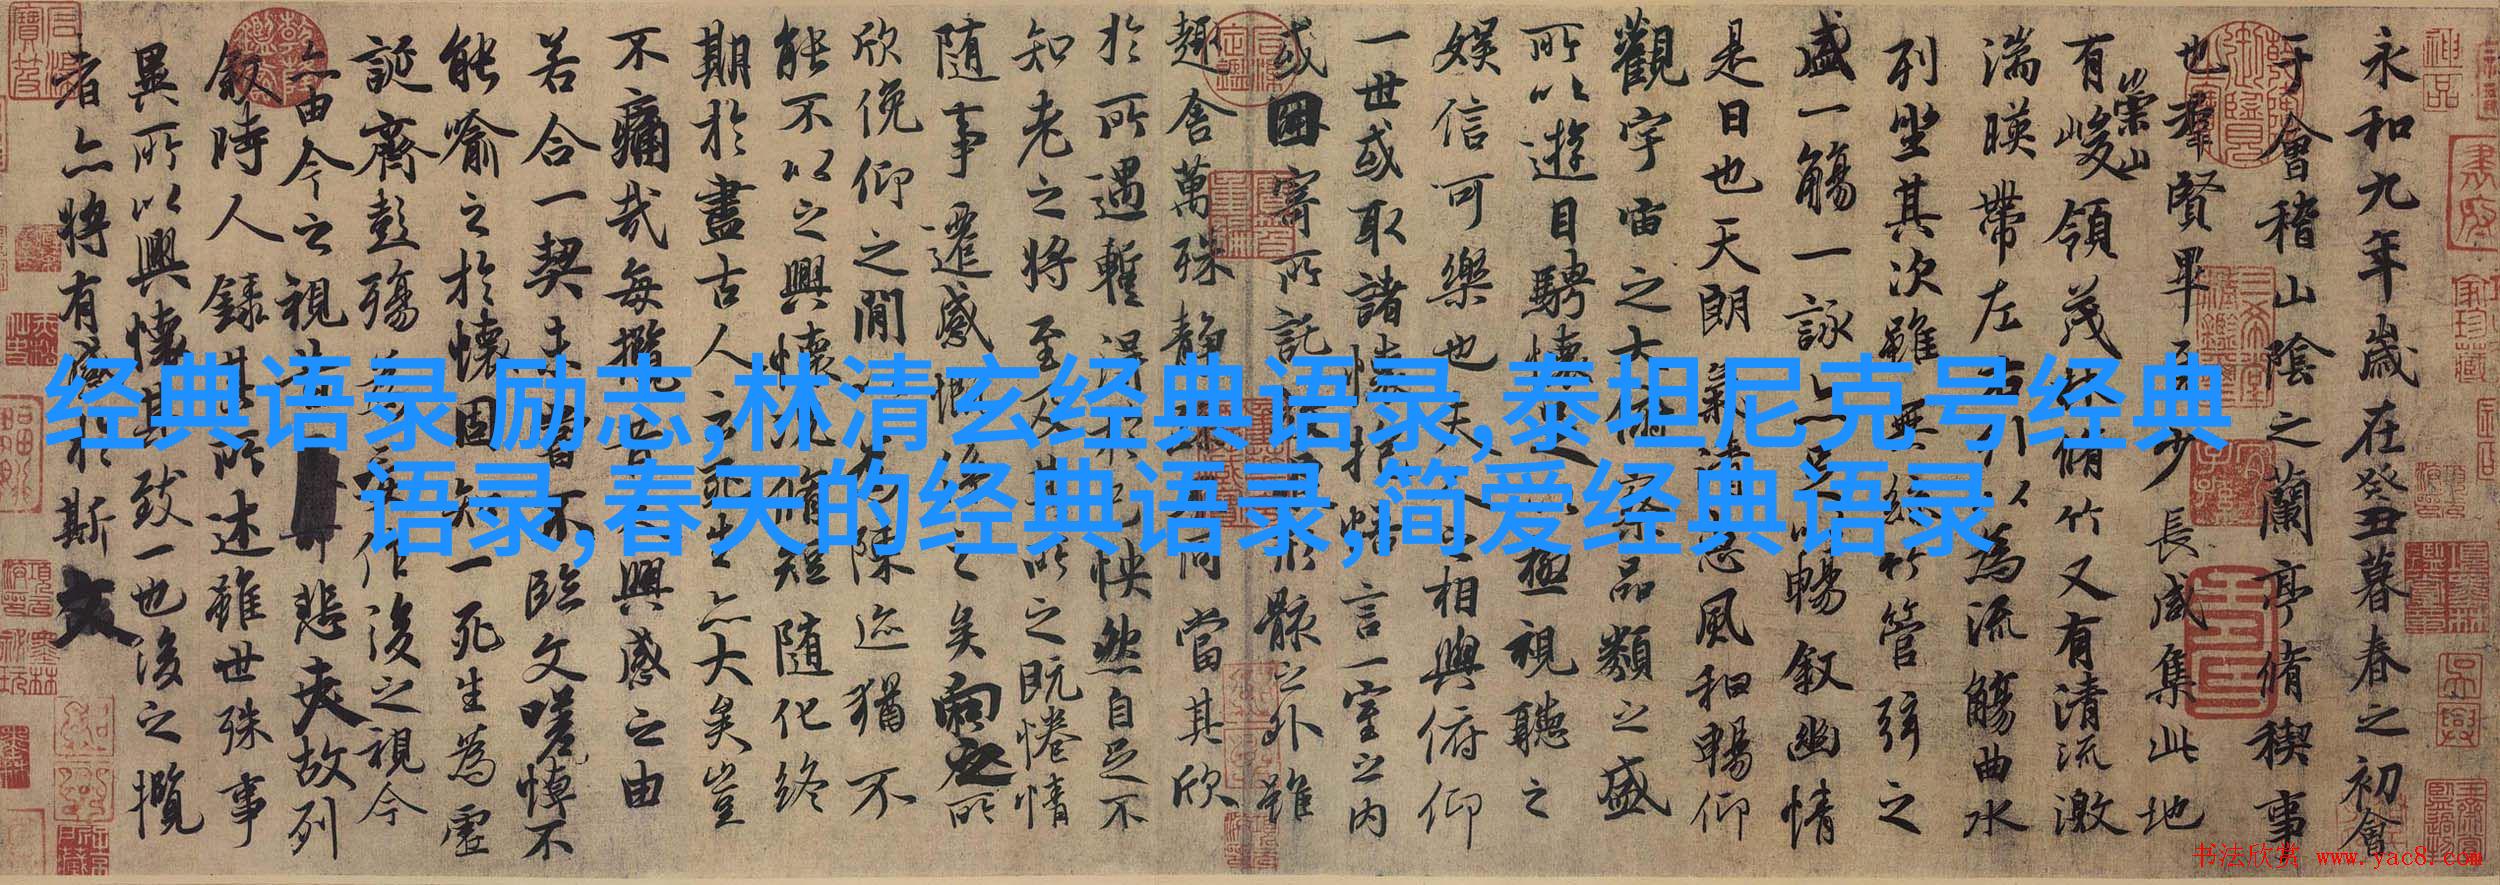 经典语录 励志,林清玄经典语录,泰坦尼克号经典
语录,春天的经典语录,简爱经典语录
永和九年歲在癸丑暮春之初會
于會稽山陰之蘭亭脩稧事
也羣賢畢至少長咸集此地
有崇山峻領茂林脩竹又有清流激
湍暎帶左右引以為流觴曲水
列坐其次雖無絲竹管弦之
盛一觴一詠亦足以暢叙幽情
是日也天朗氣清惠風和暢仰
觀宇宙之大俯察品類之盛
所以遊目騁懷足以極視聽之
娛信可樂也夫人之相與俯仰
一世或取諸懷抱悟言一室之內
或因寄所託放浪形骸之外雖
趣舍萬殊靜躁不同當其欣
於所遇蹔得於己怏然自足不
知老之將至及其所之既惓情
隨事遷感慨係之矣向之所
欣俛仰之閒以為陳迹猶不
能不以之興懷況脩短隨化終
期於盡古人云死生亦大矣豈
不痛哉每攬昔人興感之由
若合一契未嘗不臨文嗟悼不
能喻之於懷固知一死生為虛
誕齊彭殤為妄作後之視今
亦由今之視昔悲夫故列
叙時人錄其所述雖世殊事
異所以興懷其致一也後之攬
者亦將有感於斯文
书法欣赏 www.yac8.com